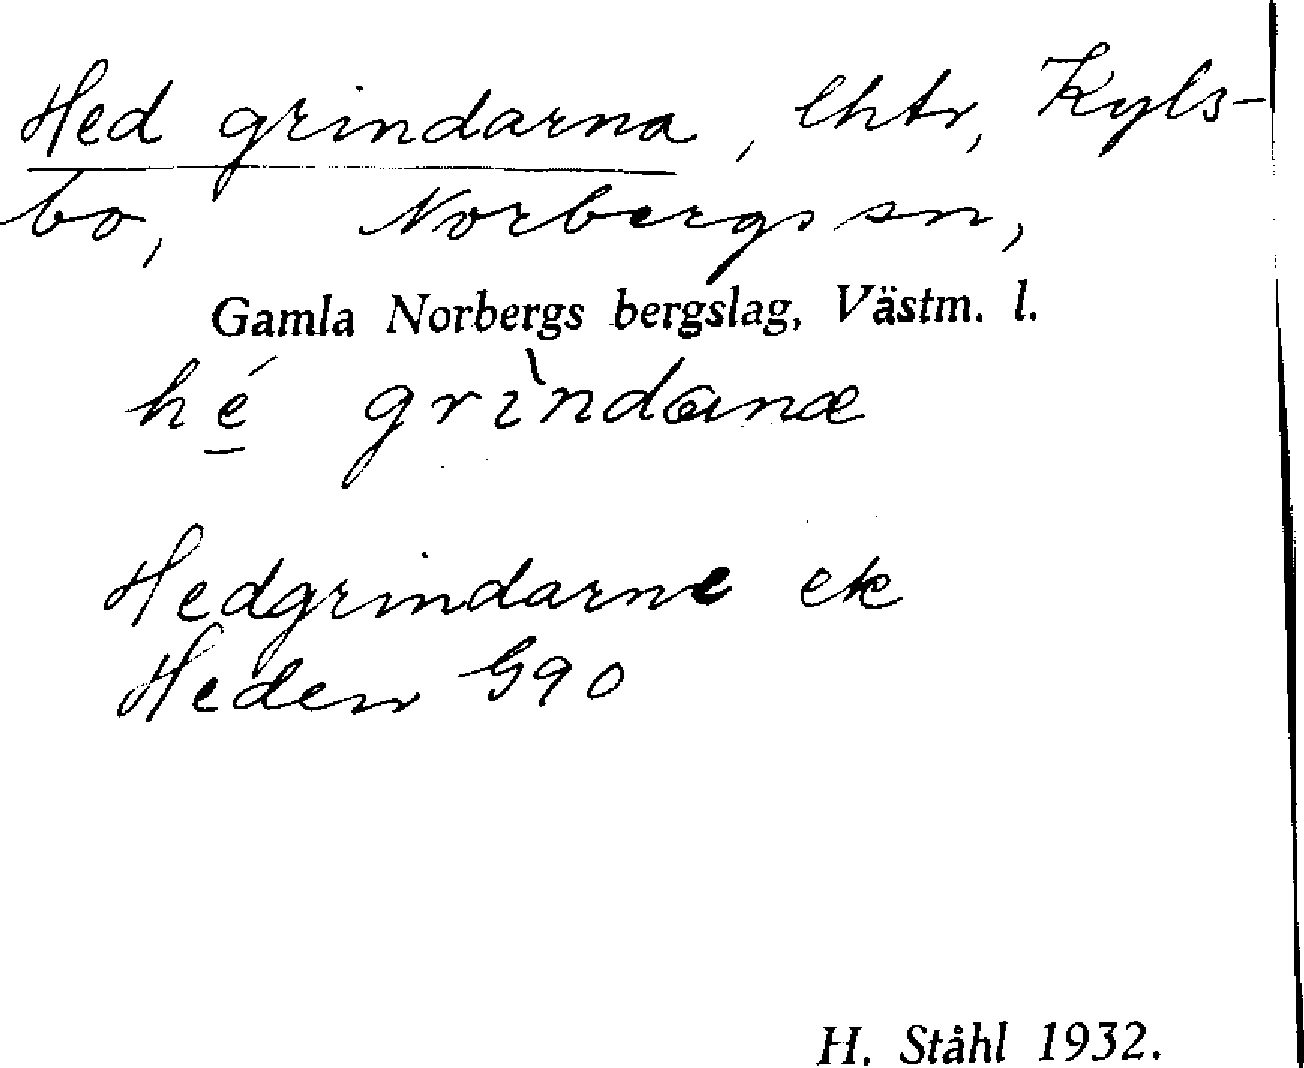 Hed grindarna, lhtr, Kyls-
bo, Norbergs sn,
Gamla Norbergs bergslag, Västm. l.
hé grìndana
Hedgrindarne ek
Heden G90
H. Ståhl 1932.